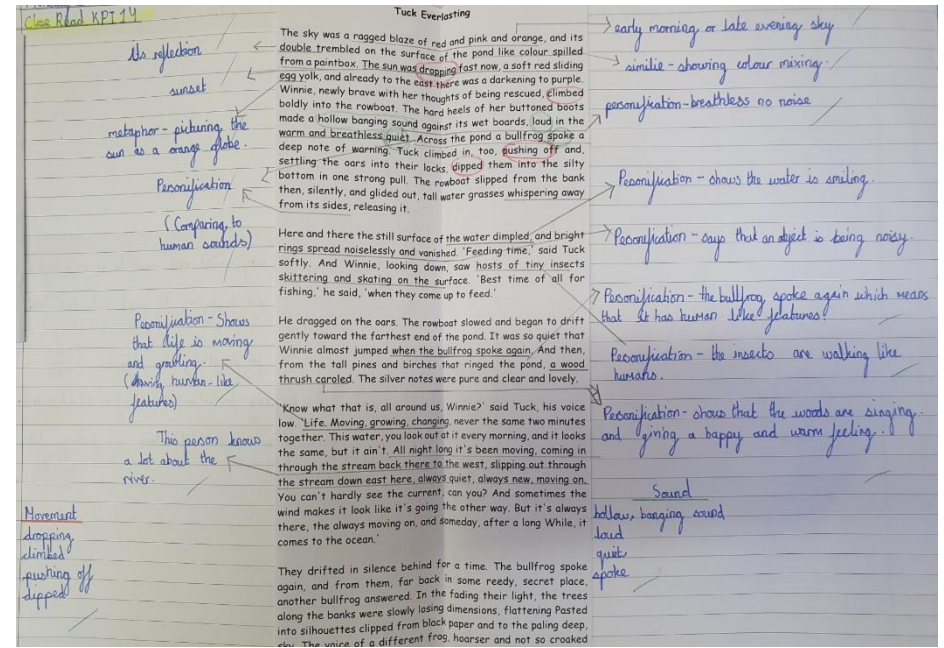 Close Read KPI 14
Its reflection
sunset
metaphor - picturing the
sun as a orange globe.
Personification
(Comparing to
human sounds)
Personification - Shows
that life is moving
and
(having human-like
features)
This person knows
a lot about the
river.
Movement
dropping
climbed
pushing off
dipped
Tuck Everlasting
The sky was a ragged blaze of red and pink and orange, and its
double trembled on the surface of the pond like colour spilled
from a paintbox. The sun was dropping fast now, a soft red sliding
egg yolk, and already to the east there was a darkening to purple.
Winnie, newly brave with her thoughts of being rescued, climbed
boldly into the rowboat. The hard heels of her buttoned boots
made a hollow banging sound against its wet boards, loud in the
warm and breathless quiet. Across the pond a bullfrog spoke a
deep note of warning. Tuck climbed in, too, pushing off and,
settling the oars into their locks, dipped them into the silty
bottom in one strong pull. The rowboat slipped from the bank
then, silently, and glided out, tall water grasses whispering away
from its sides, releasing it.
Here and there the still surface of the water dimpled, and bright
rings spread noiselessly and vanished. 'Feeding time,' said Tuck
softly. And Winnie, looking down, saw hosts of tiny insects
skittering and skating on the surface. 'Best time of all for
fishing,' he said, 'when they come up to feed.'
He dragged on the oars. The rowboat slowed and began to drift
gently toward the farthest end of the pond. It was so quiet that
Winnie almost jumped when the bullfrog spoke again. And then,
from the tall pines and birches that ringed the pond, a wood
thrush caroled. The silver notes were pure and clear and lovely.
'Know what that is, all around us, Winnie?' said Tuck, his voice
low. 'Life. Moving, growing, changing, never the same two minutes
together. This water, you look out at it every morning, and it looks
the same, but it ain't. All night long it's been moving, coming in
through the stream back there to the west, slipping out through
the stream down east here, always quiet, always new, moving on.
You can't hardly see the current, can you? And sometimes the
wind makes it look like it's going the other way. But it's always
there, the always moving on, and someday, after a long While, it
comes to the ocean.'
They drifted in silence behind for a time. The bullfrog spoke
again, and from them, far back in some reedy, secret place,
another bullfrog answered. In the fading their light, the trees
along the banks were slowly losing dimensions, flattening Pasted
into silhouettes clipped from black paper and to the paling deep,
sky. The voice of a different frog, hoarser and not so croaked
early morning or late evening sky
similie - showing colour mixing.
personification - breathless no noise
Personification - shows the water is smiling.
Personification - says that an object is being noisy.
Personification - the bullfrog spoke again which means
that it has human like features.
Personification - the insects are walking like
humans.
Personification - shows that the woods are singing
and giving a happy and warm feeling.
Sound
hollow, banging sound
loud
quit
spoke